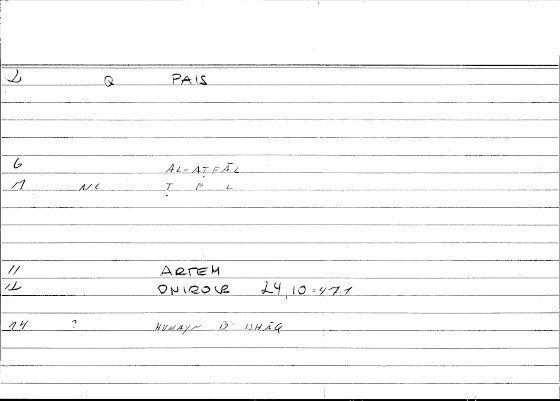 2 Q PAIS
6 AL-AṬFĀL
7 NC Ṭ F L
11 ARTEM
12 ONIROCR 24,10=47.1
14 ? HUNAYN B ISHĀQ